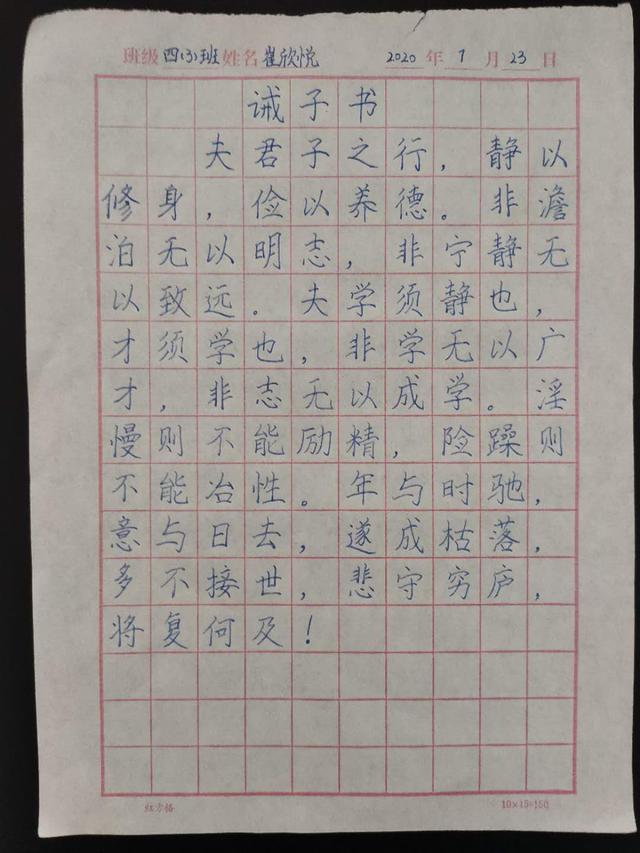 班级 四(3)班 姓名 崔欣悦 2020 年 7 月 23 日
诫子书
夫君子之行，静以
修身，俭以养德。非澹
泊无以明志，非宁静无
以致远。夫学须静也，
才须学也，非学无以广
才，非志无以成学。淫
慢则不能励精，险躁则
不能冶性。年与时驰，
意与日去，遂成枯落，
多不接世，悲守穷庐，
将复何及！
红方格 10×15=150